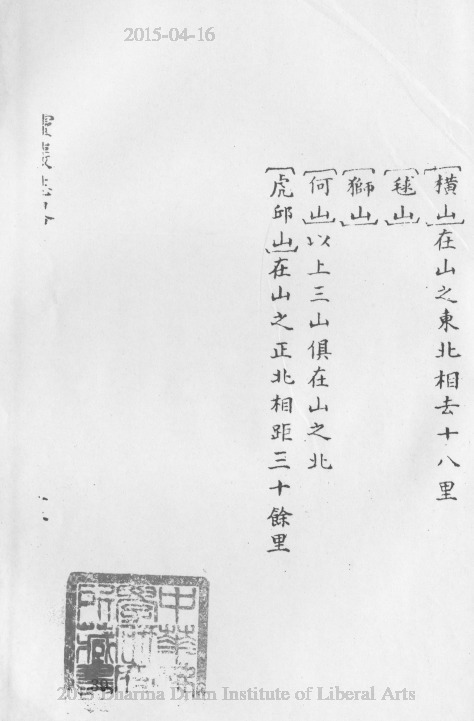 2015-04-16
〔橫山〕在山之東北相去十八里
〔毬山〕
〔獅山〕
〔何山〕以上三山俱在山之北
〔虎邱山〕在山之正北相距三十餘里
中華
所藏
2015 Dharma Drum Institute of Liberal Arts